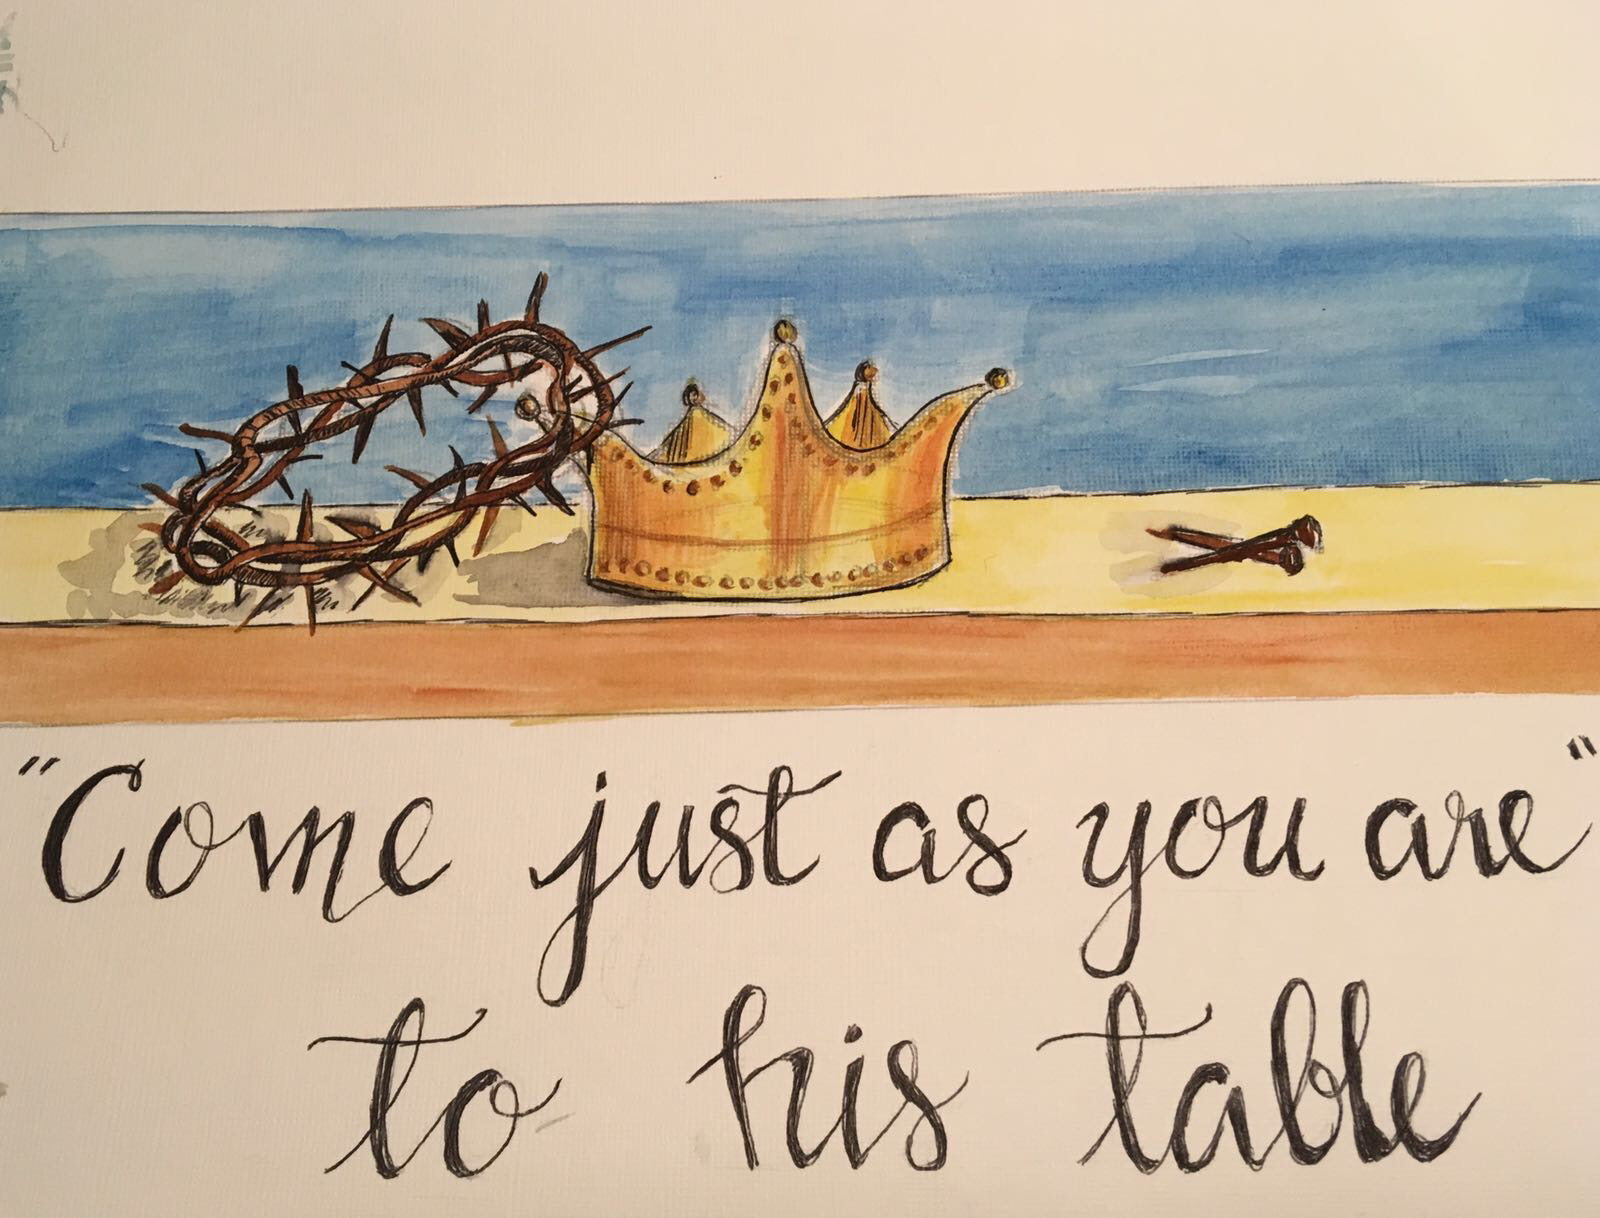 "Come just as you are"
to his table